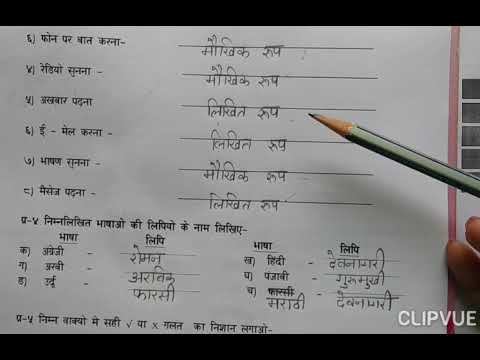 ६) फोन पर बात करना- मौखिक रूप
४) रेडियो सुनना - मौखिक रूप
५) अखबार पढ़ना लिखित रूप
६) ई - मेल करना - लिखित रूप
७) भाषण सुनना - मौखिक रूप
८) मैसेज पढ़ना - लिखित रूप
प्र-४ निम्नलिखित भाषाओ की लिपियो के नाम लिखिए-
भाषा लिपि भाषा लिपि
क) अंग्रेजी - रोमन ख) हिंदी - देवनागरी
ग) अरबी - अरबिक घ) पंजाबी - गुरूमुखी
ड) उर्दू फारसी च) फारसी
मराठी - देवनागरी
प्र-५ निम्न वाक्यो मे सही √ या x गलत का निशान लगाओ-
CLIPVUE